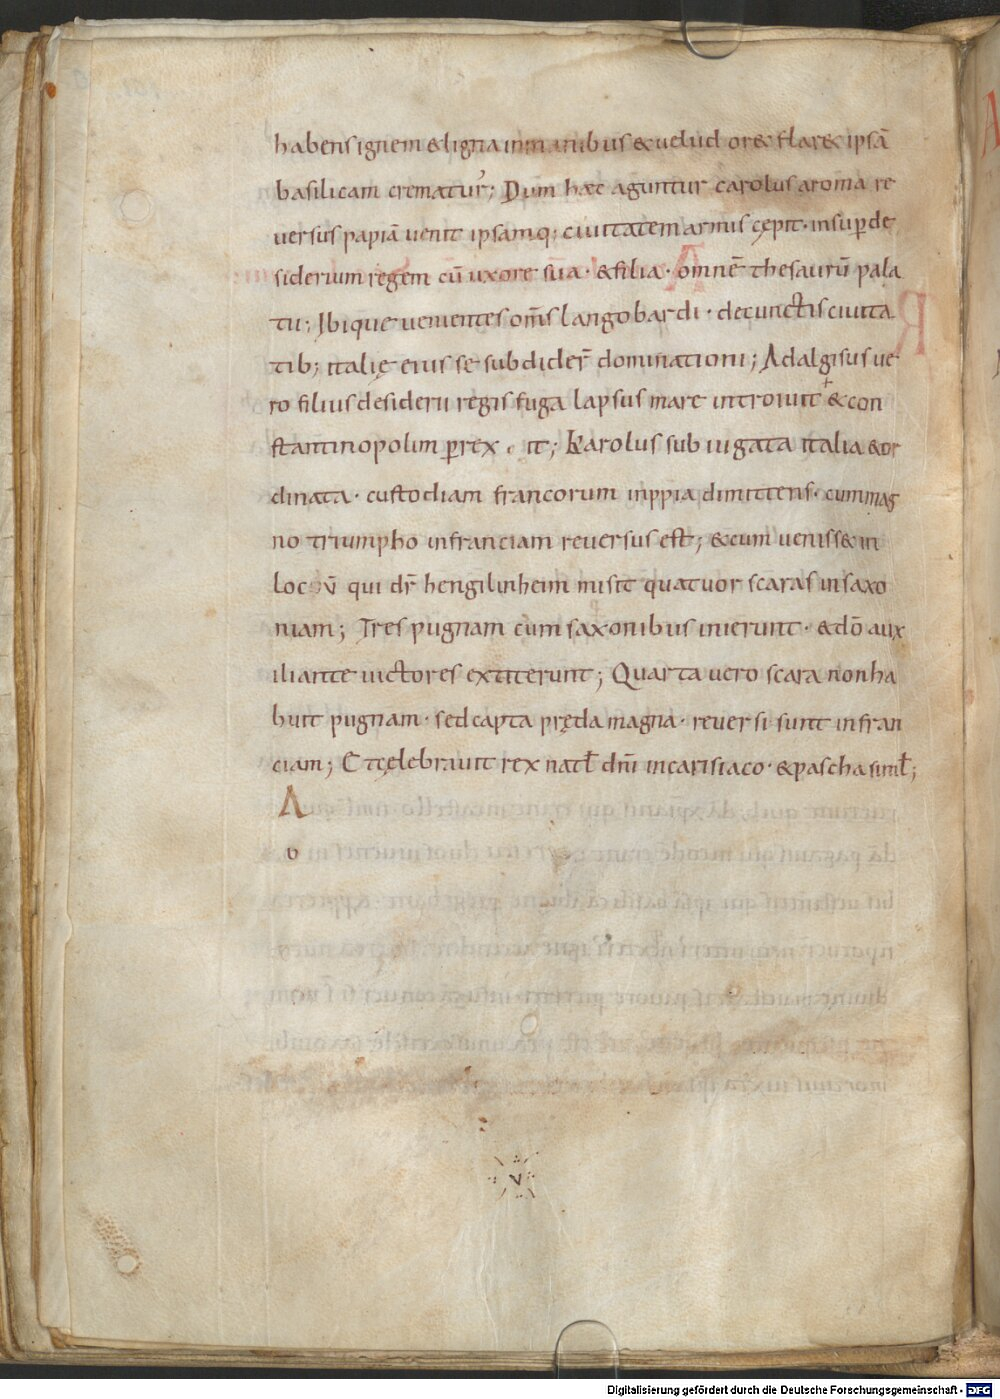 habens ignem & ligna in manibus & velud or& flar& ipsā
basilicam crematur̉; Dum haec aguntur carolus a roma re
versus papiā venit ipsamq; civitatem armis cępit · insup de
siderium regem cū uxore sua · & filia · omnē thesaurū pala
tii; Ibique venientes om̄s langobardi · de cunctis civita
tib; italię eius se subdider̄ dominationi; Adalgisus ve
ro filius desiderii regis fuga lapsus mare introivit & con
stantinopolim ꝑrex it; Karolus subiugata italia & or
dinata · custodiam francorum in ppia dimittens · cum mag
no triumpho in franciam reversus est; & cum veniss& in
loc ū qui dr̄ hengilinheim misit quatuor scaras in saxo
niam; Tres pugnam cum saxonibus inierunt · & dō aux
iliante victores extiterunt; Quarta vero scara non ha
buit pugnam · sed capta pręda magna · reversi sunt in fran
ciam; Et cęlebravit rex natl̄ dn̄i in carisiaco · & pascha simil̄;
A
o
v
Digitalisierung gefördert durch die Deutsche Forschungsgemeinschaft - DFG